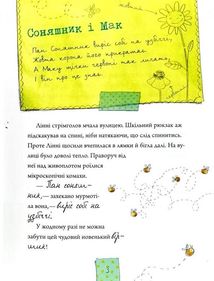 Соняшник і Мак
Пан Соняшник виріс собі на узбіччі,
Жовта корона його прикрашає.
А Маку щічки червоні так личать,
І він про це знає.
Лінні стрімголов мчала вулицею. Шкільний рюкзак аж
підскакував на спині, ніби натякаючи, що слід спинитись.
Проте Лінні щосили вчепилася в лямки й бігла далі. На ву-
лиці було доволі тепло. Праворуч від
неї над живоплотом роїлися
мікроскопічні комахи.
— Пан соняш-
ник, — захекано мурмоті-
ла вона, — виріс собі на
узбіччі.
У жодному разі не можна
забути цей чудовий новенький вір-
шик!
3